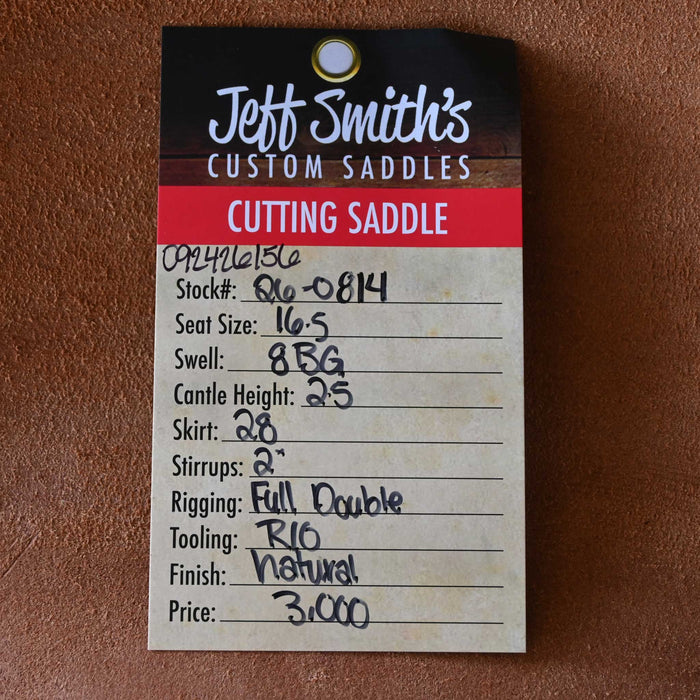 Jeff Smith's
CUSTOM SADDLES
CUTTING SADDLE
092426156
Stock#: 26-0814
Seat Size: 16.5
Swell: 8BG
Cantle Height: 2.5
Skirt: 28
Stirrups: 2"
Rigging: Full Double
Tooling: RIO
Finish: Natural
Price: 3,000